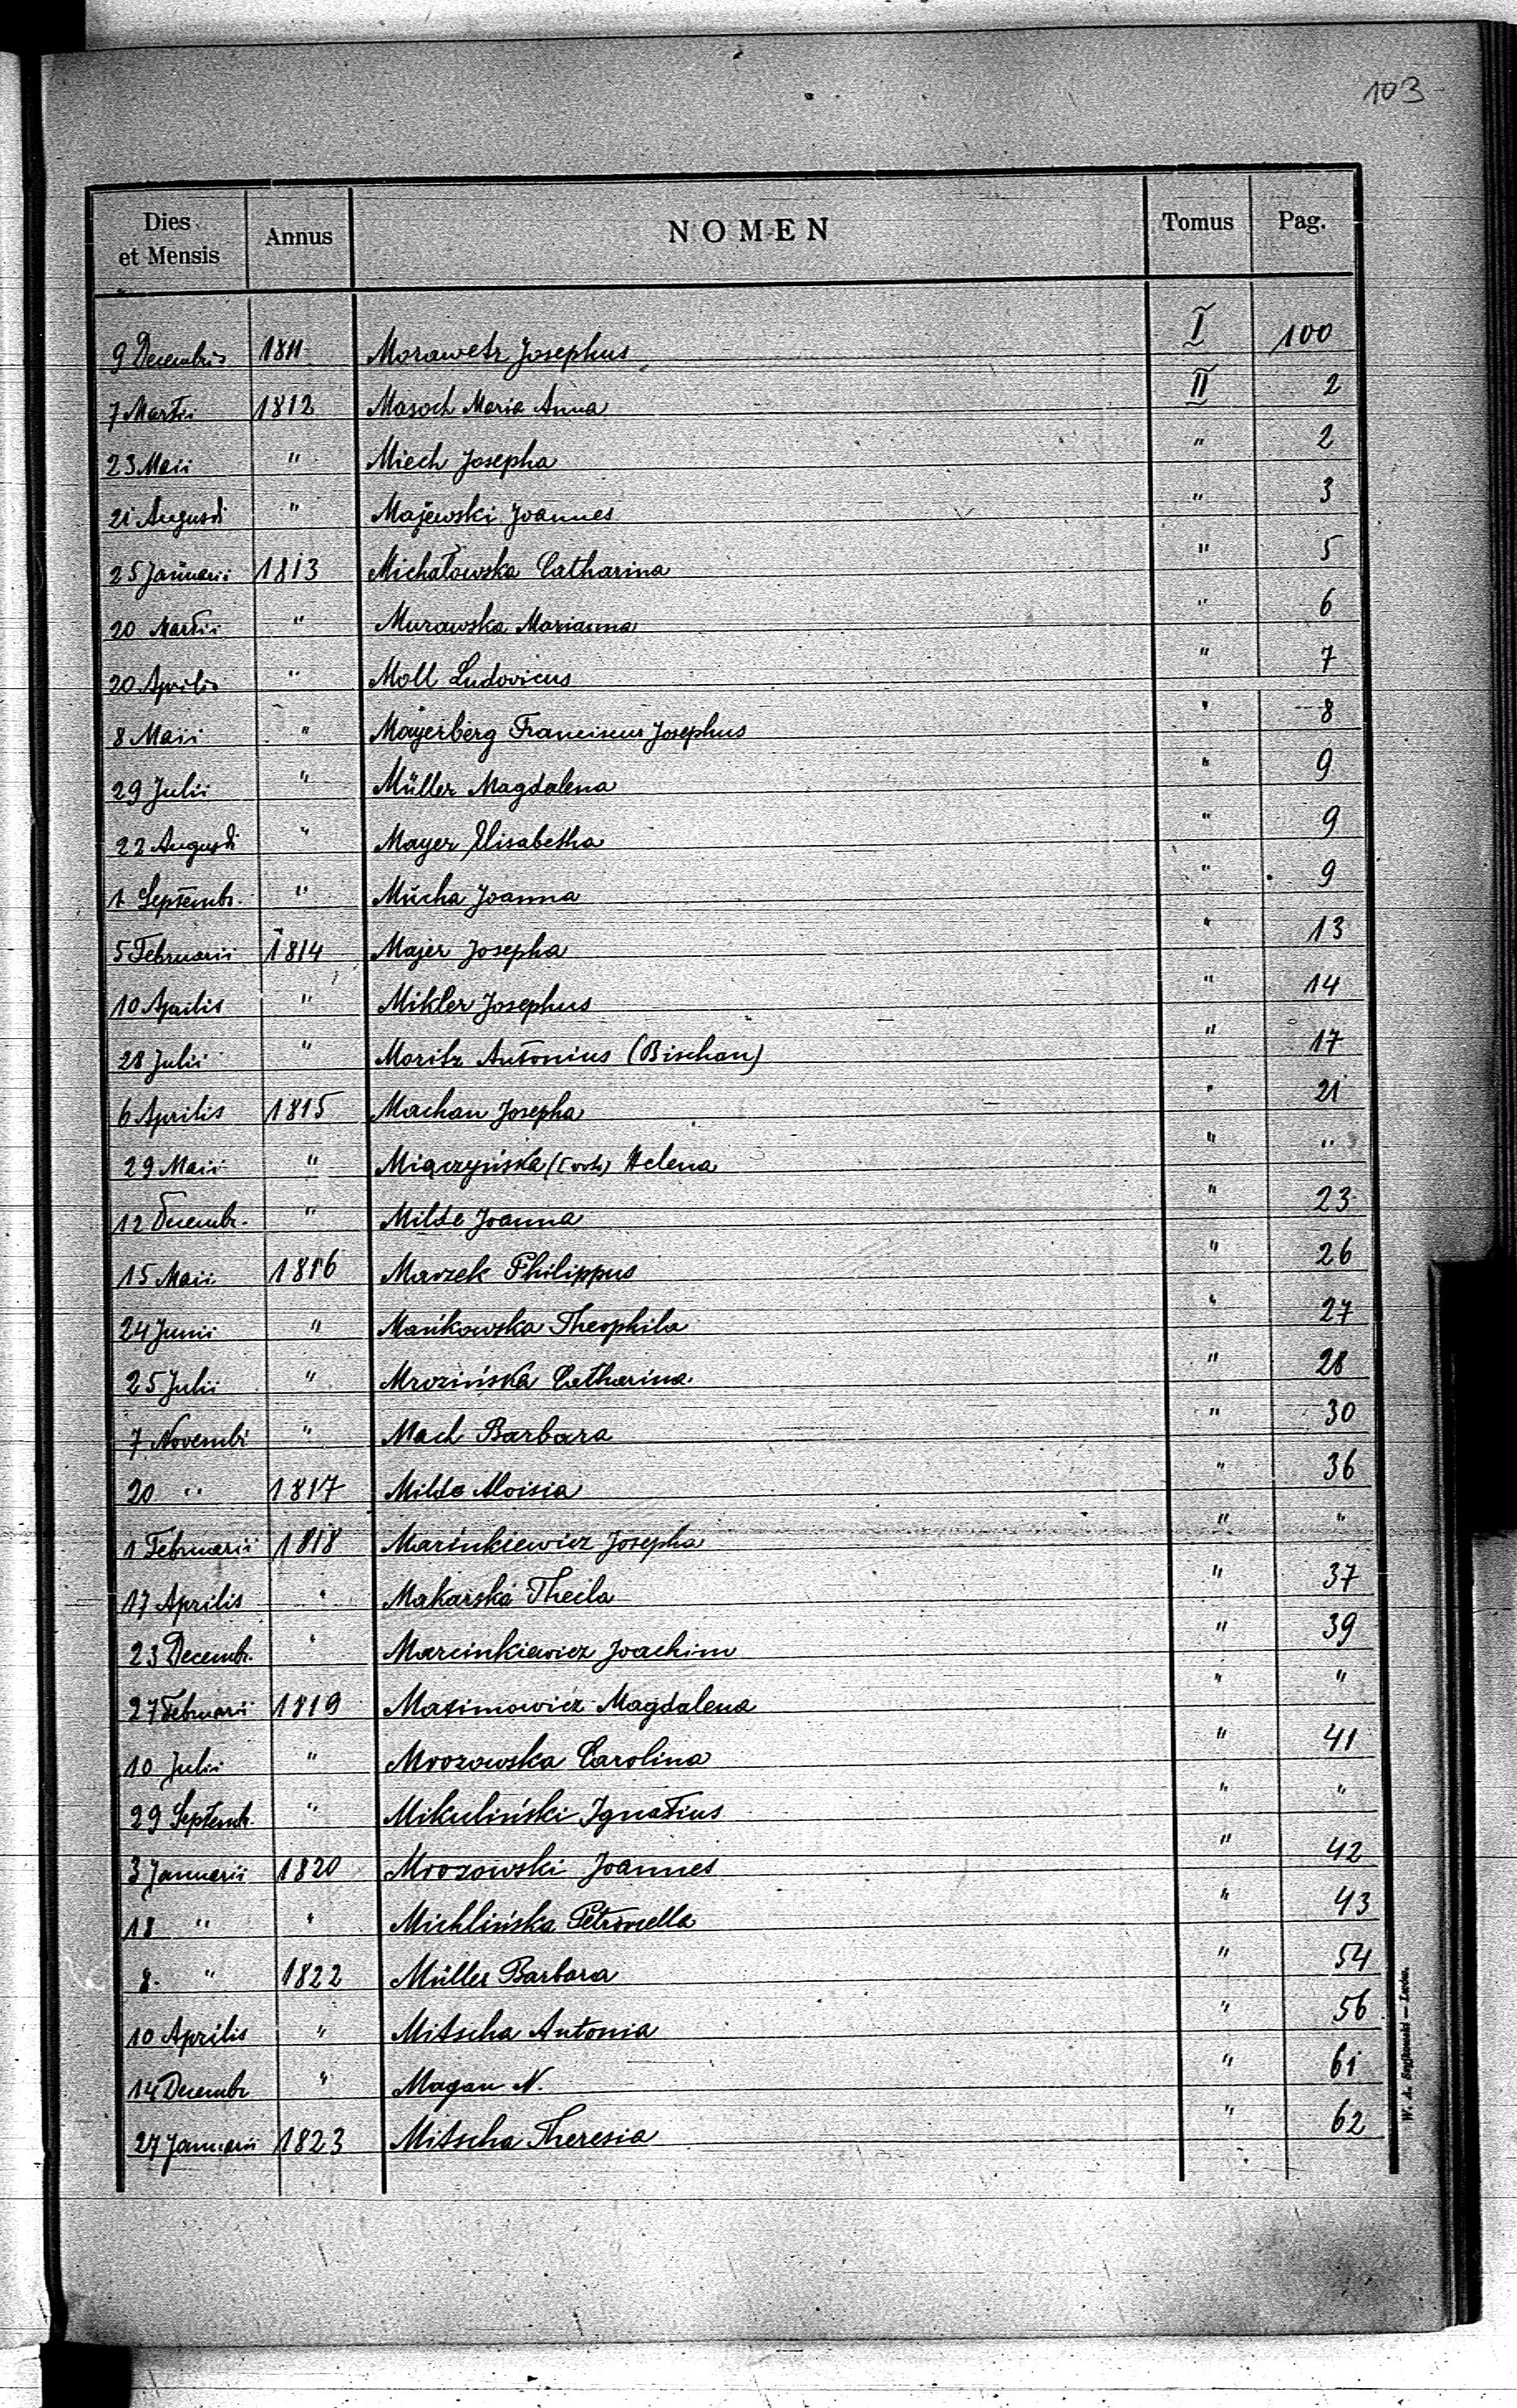 103
Dies et Mensis Annus NOMEN Tomus Pag.
9 Decembris 1811 Morawetz Josephus I 100
7 Martii 1812 Masoch Maria Anna II 2
23 Maii " Miech Josepha " 2
21 Augusti " Majewski Joannes " 3
25 Januarii 1813 Michałowska Catharina " 5
20 Martii " Murawska Marianna " 6
20 Aprilis " Moll Ludovicus " 7
8 Maii " Mayerberg Franciscus Josephus " 8
29 Julii " Müller Magdalena " 9
22 Augusti " Mayer Elisabetha " 9
1 Septembr. " Mucha Joanna " 9
5 Februarii 1814 Majer Josepha " 13
10 Aprilis " Mikler Josephus " 14
28 Julii " Moritz Antonius (Bischan) " 17
6 Aprilis 1815 Machan Josepha " 21
29 Maii " Miączyńska Helena " "
12 Decembr. " Milde Joanna " 23
15 Maii 1816 Marzek Philippus " 26
24 Junii " Mańkowska Theophila " 27
25 Julii " Mrozińska Catharina " 28
7 Novembr " Mach Barbara " 30
20 " 1817 Milde Aloisia " 36
1 Februarii 1818 Marinkiewicz Josepha " "
17 Aprilis " Makarska Thecla " 37
23 Decembr. " Marcinkiewicz Joachim " 39
27 Februarii 1819 Maximowicz Magdalena " "
10 Julii " Mrozowska Carolina " 41
29 Septemb. " Mikuliński Ignatius " "
3 Januarii 1820 Mrozowski Joannes " 42
18 " " Michlińska Petronella " 43
8. " 1822 Müller Barbara " 54
10 Aprilis " Mitscha Antonia " 56
14 Decembr " Magan N. " 61
27 Januarii 1823 Mitscha Theresia " 62